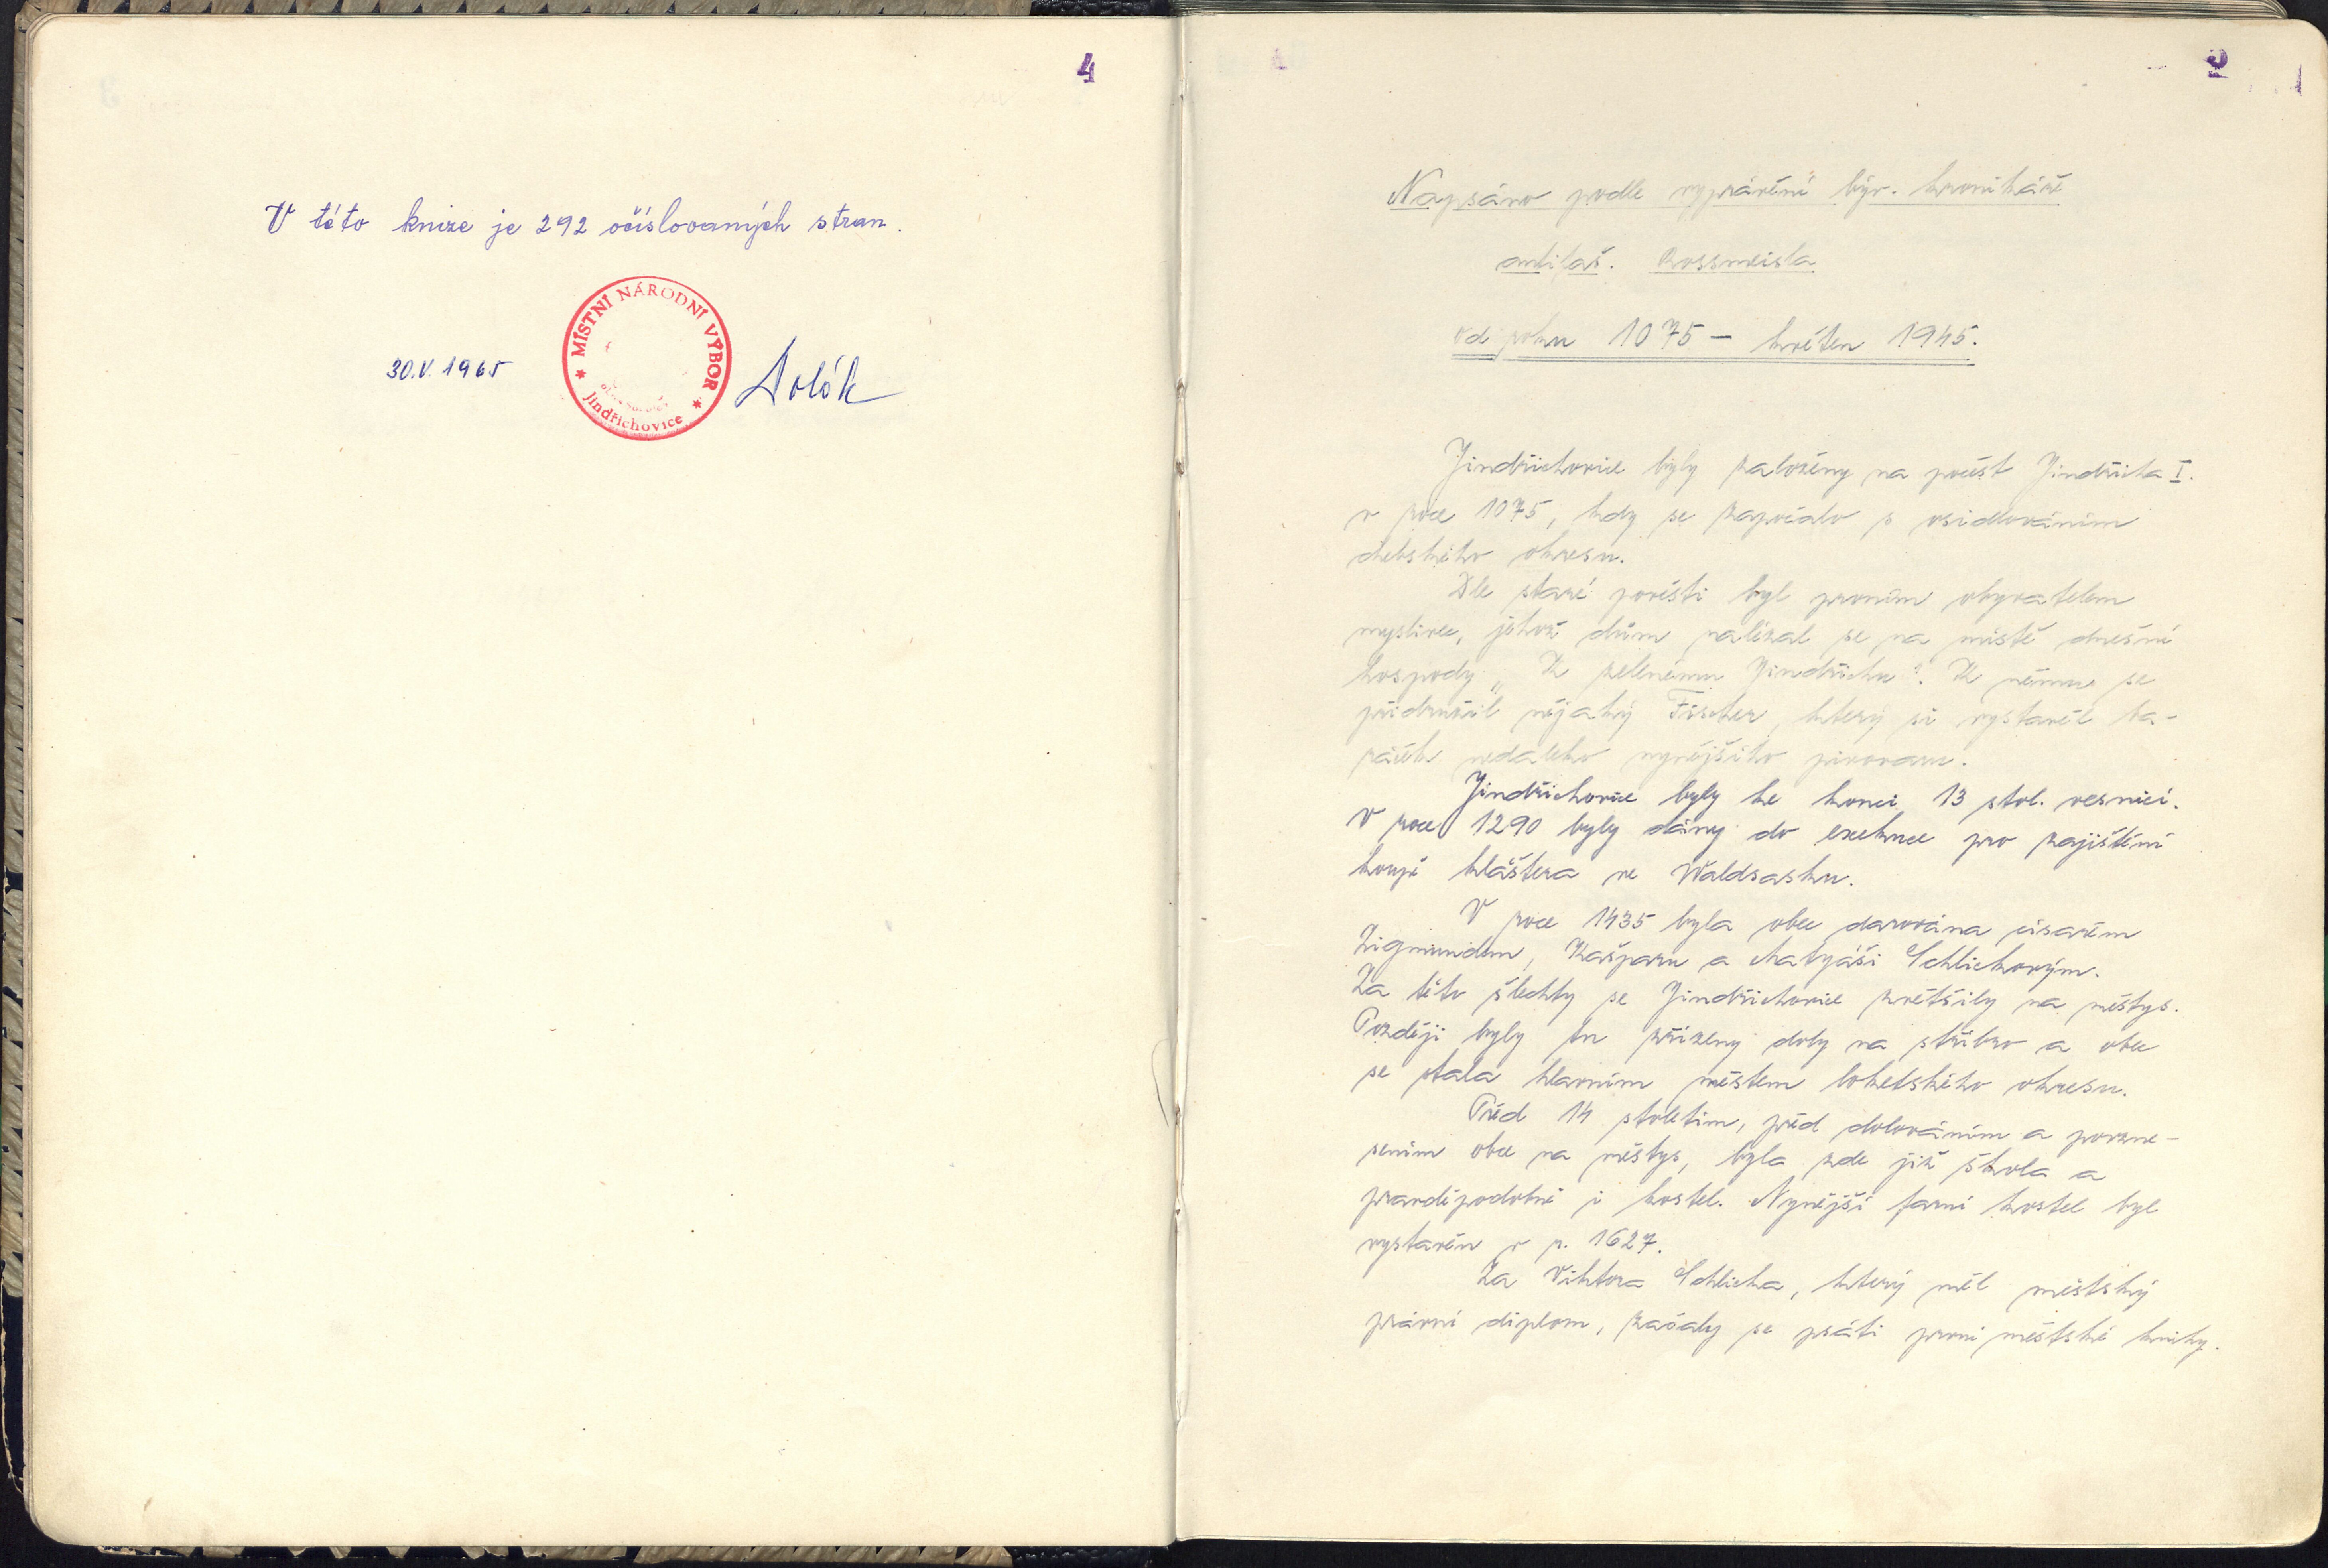 4
V této knize je 292 očíslovaných stran.
MÍSTNÍ NÁRODNÍ VÝBOR
Jindřichovice
30.V.1965
5
Napsáno podle vyprávění býv. kronikáře
antifaš. Rossmeisla
od roku 1075 – květen 1945.
Jindřichovice byly založeny na počest Jindřicha I.
v roce 1075, kdy se započalo s osidlováním
chebského okresu.
Dle staré pověsti byl prvním obyvatelem
myslivec, jehož dům nalézal se na místě dnešní
hospody „K zelenému Jindřichu". K němu se
přidružil nějaký Fischer, který si vystavěl ba-
ráček nedaleko nynějšího pivovaru.
Jindřichovice byly ke konci 13 stol. vesnicí.
V roce 1290 byly dány do exekuce pro zajištění
koupě kláštera ve Waldsasku.
V roce 1435 byla obec darována císařem
Zigmundem, Kašparu a Matyáši Schlickovým.
Za této šlechty se Jindřichovice zvětšily na městys.
Později byly tu zřízeny doly na stříbro a obec
se stala hlavním městem loketského okresu.
Před 14 stoletím, před dolováním a povzne-
sením obce na městys, byla zde již škola a
pravděpodobně i kostel. Nynější farní kostel byl
vystavěn v r. 1627.
Za Viktora Schlicka, který měl městský
právní diplom, začaly se psáti první městské knihy.